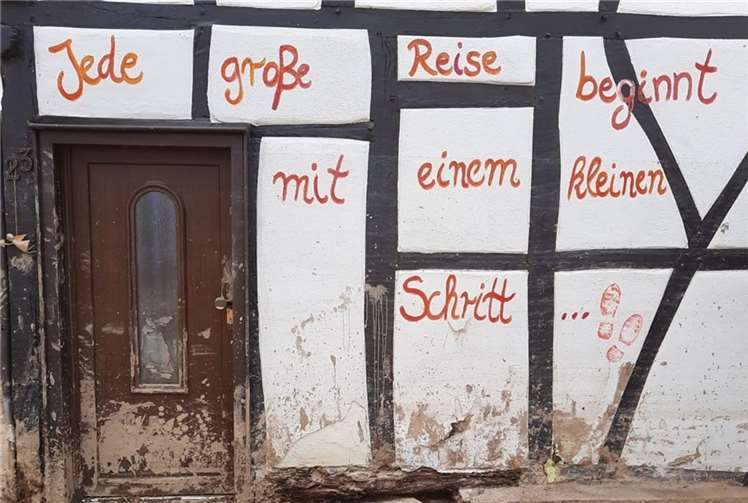 Jede große Reise beginnt
mit einem kleinen
Schritt ...
23